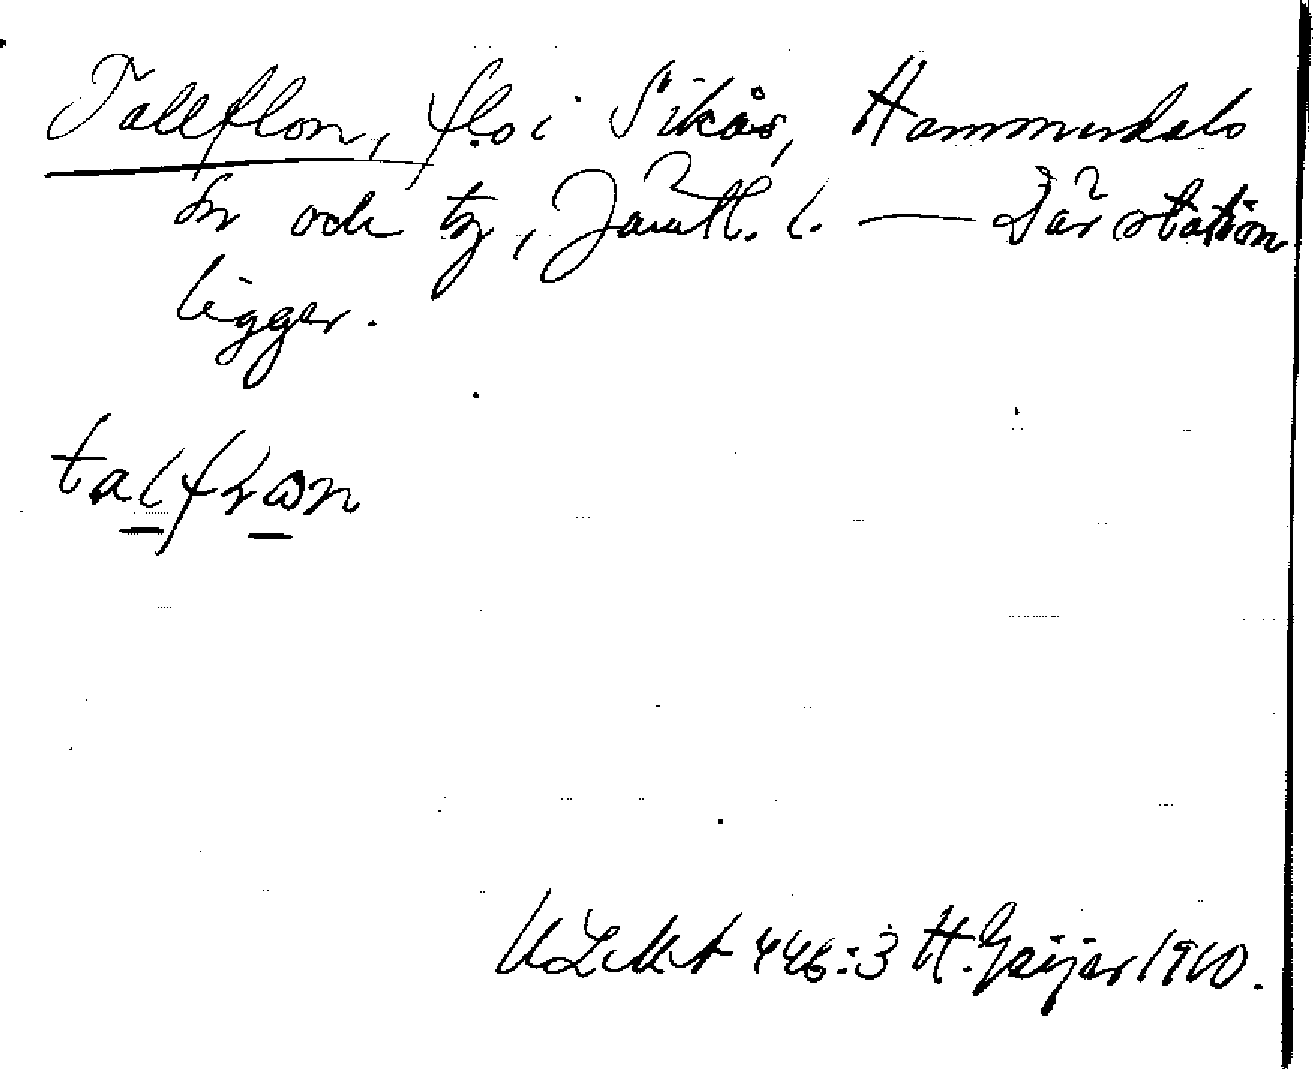 Tallflon, flo i Sikås, Hammerdals
sn och tg, Jämtl. l. — Där station
ligger.
talflon
ULMA 446:3 H. Geijer 1910.